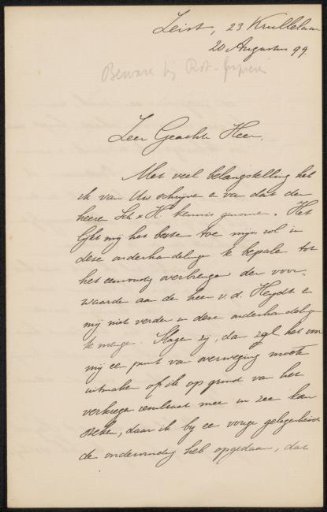 Zeist, 23 Krullelaan
20 Augustus 99
Zeer Geachte Heer,
Met veel belangstelling heb
ik van Uw schrijven en van dat der
heere kennis genomen. Het
lijkt mij het beste toe mijn rol in
deze onderhandelingen te bepalen tot
het eenvoudig overbrengen der voor-
waarde aan de heer v. d. Heydt en
mij niet verder in deze onderhandeling
te mengen. Mage zij, dan zal het voor
mij een punt van overweging moeten
uitmaken of ik op grond van het
verkregen resultaat mee in zee kan
steken, daar ik bij een vorige gelegenheid
de ondervinding heb opgedaan, dat